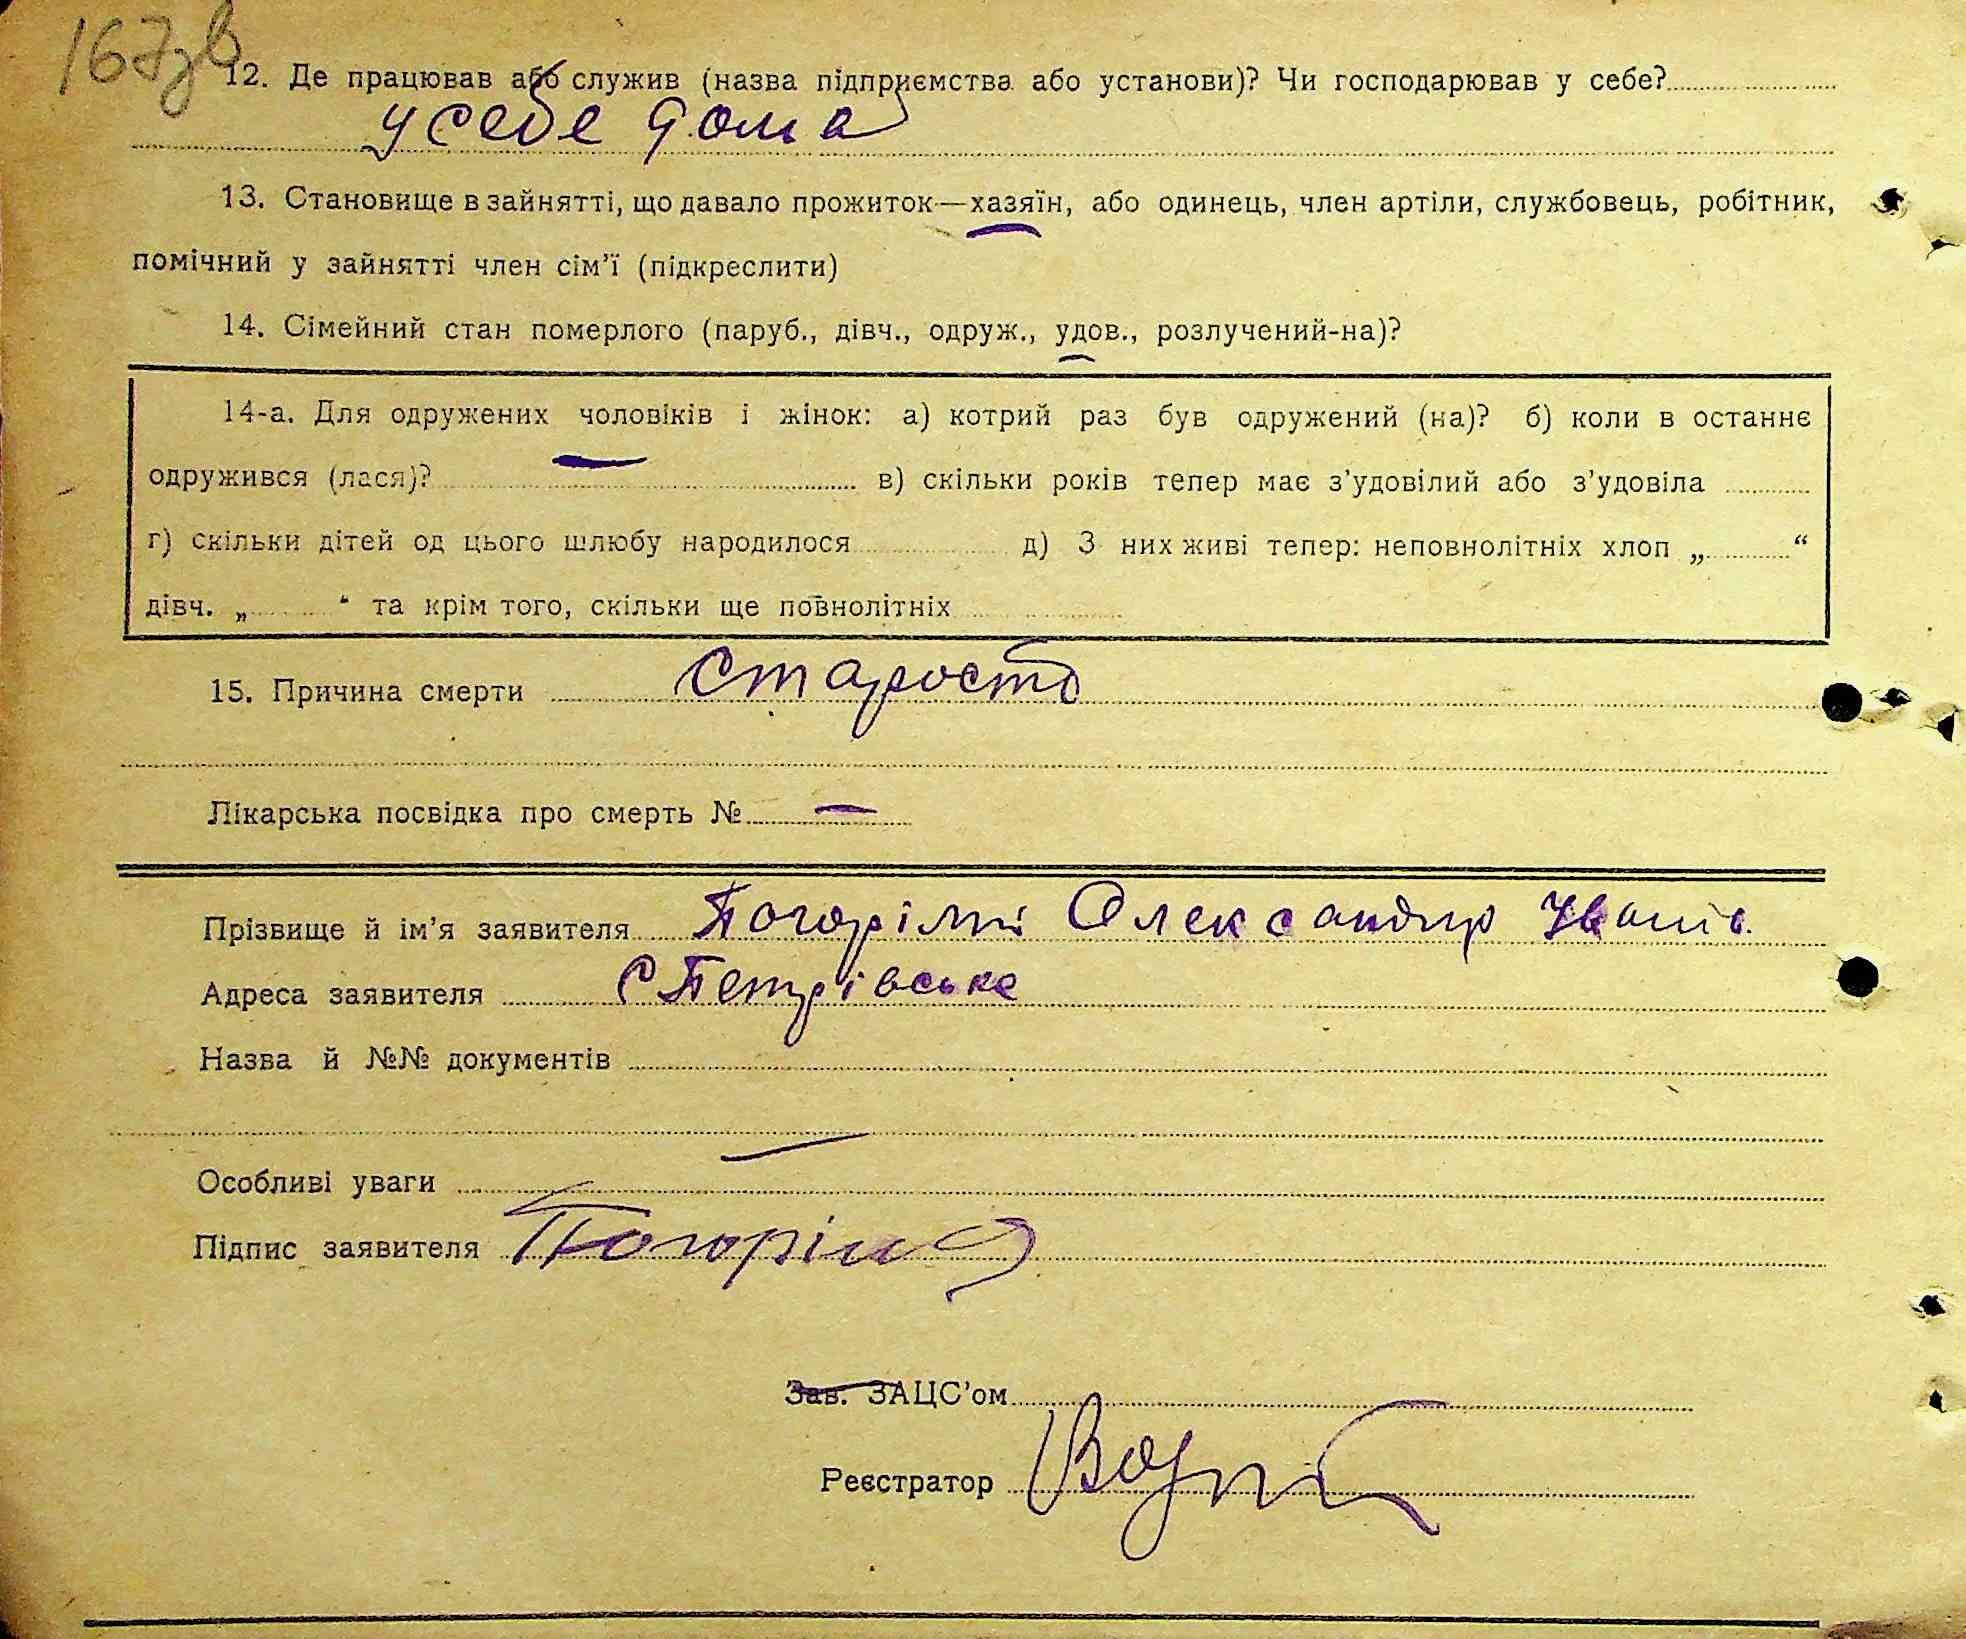 167зв
12. Де працював або служив (назва підприємства або установи)? Чи господарював у себе?
у себе дома
13. Становище в зайнятті, що давало прожиток—хазяїн, або одинець, член артіли, службовець, робітник,
помічний у зайнятті член сім’ї (підкреслити)
14. Сімейний стан померлого (паруб., дівч., одруж., удов., розлучений-на)?
14-а. Для одружених чоловіків і жінок: а) котрий раз був одружений (на)? б) коли в останнє
одружився (лася)? — в) скільки років тепер має з’удовілий або з’удовіла
г) скільки дітей од цього шлюбу народилося д) З них живі тепер: неповнолітніх хлоп „ “
дівч. „ “ та крім того, скільки ще повнолітніх
15. Причина смерти старость
Лікарська посвідка про смерть № —
Прізвище й ім’я заявителя Олександр Іванів.
Адреса заявителя С Петрівське
Назва й №№ документів
—
Особливі уваги
Підпис заявителя
Зав. ЗАЦС’ом
Реєстратор